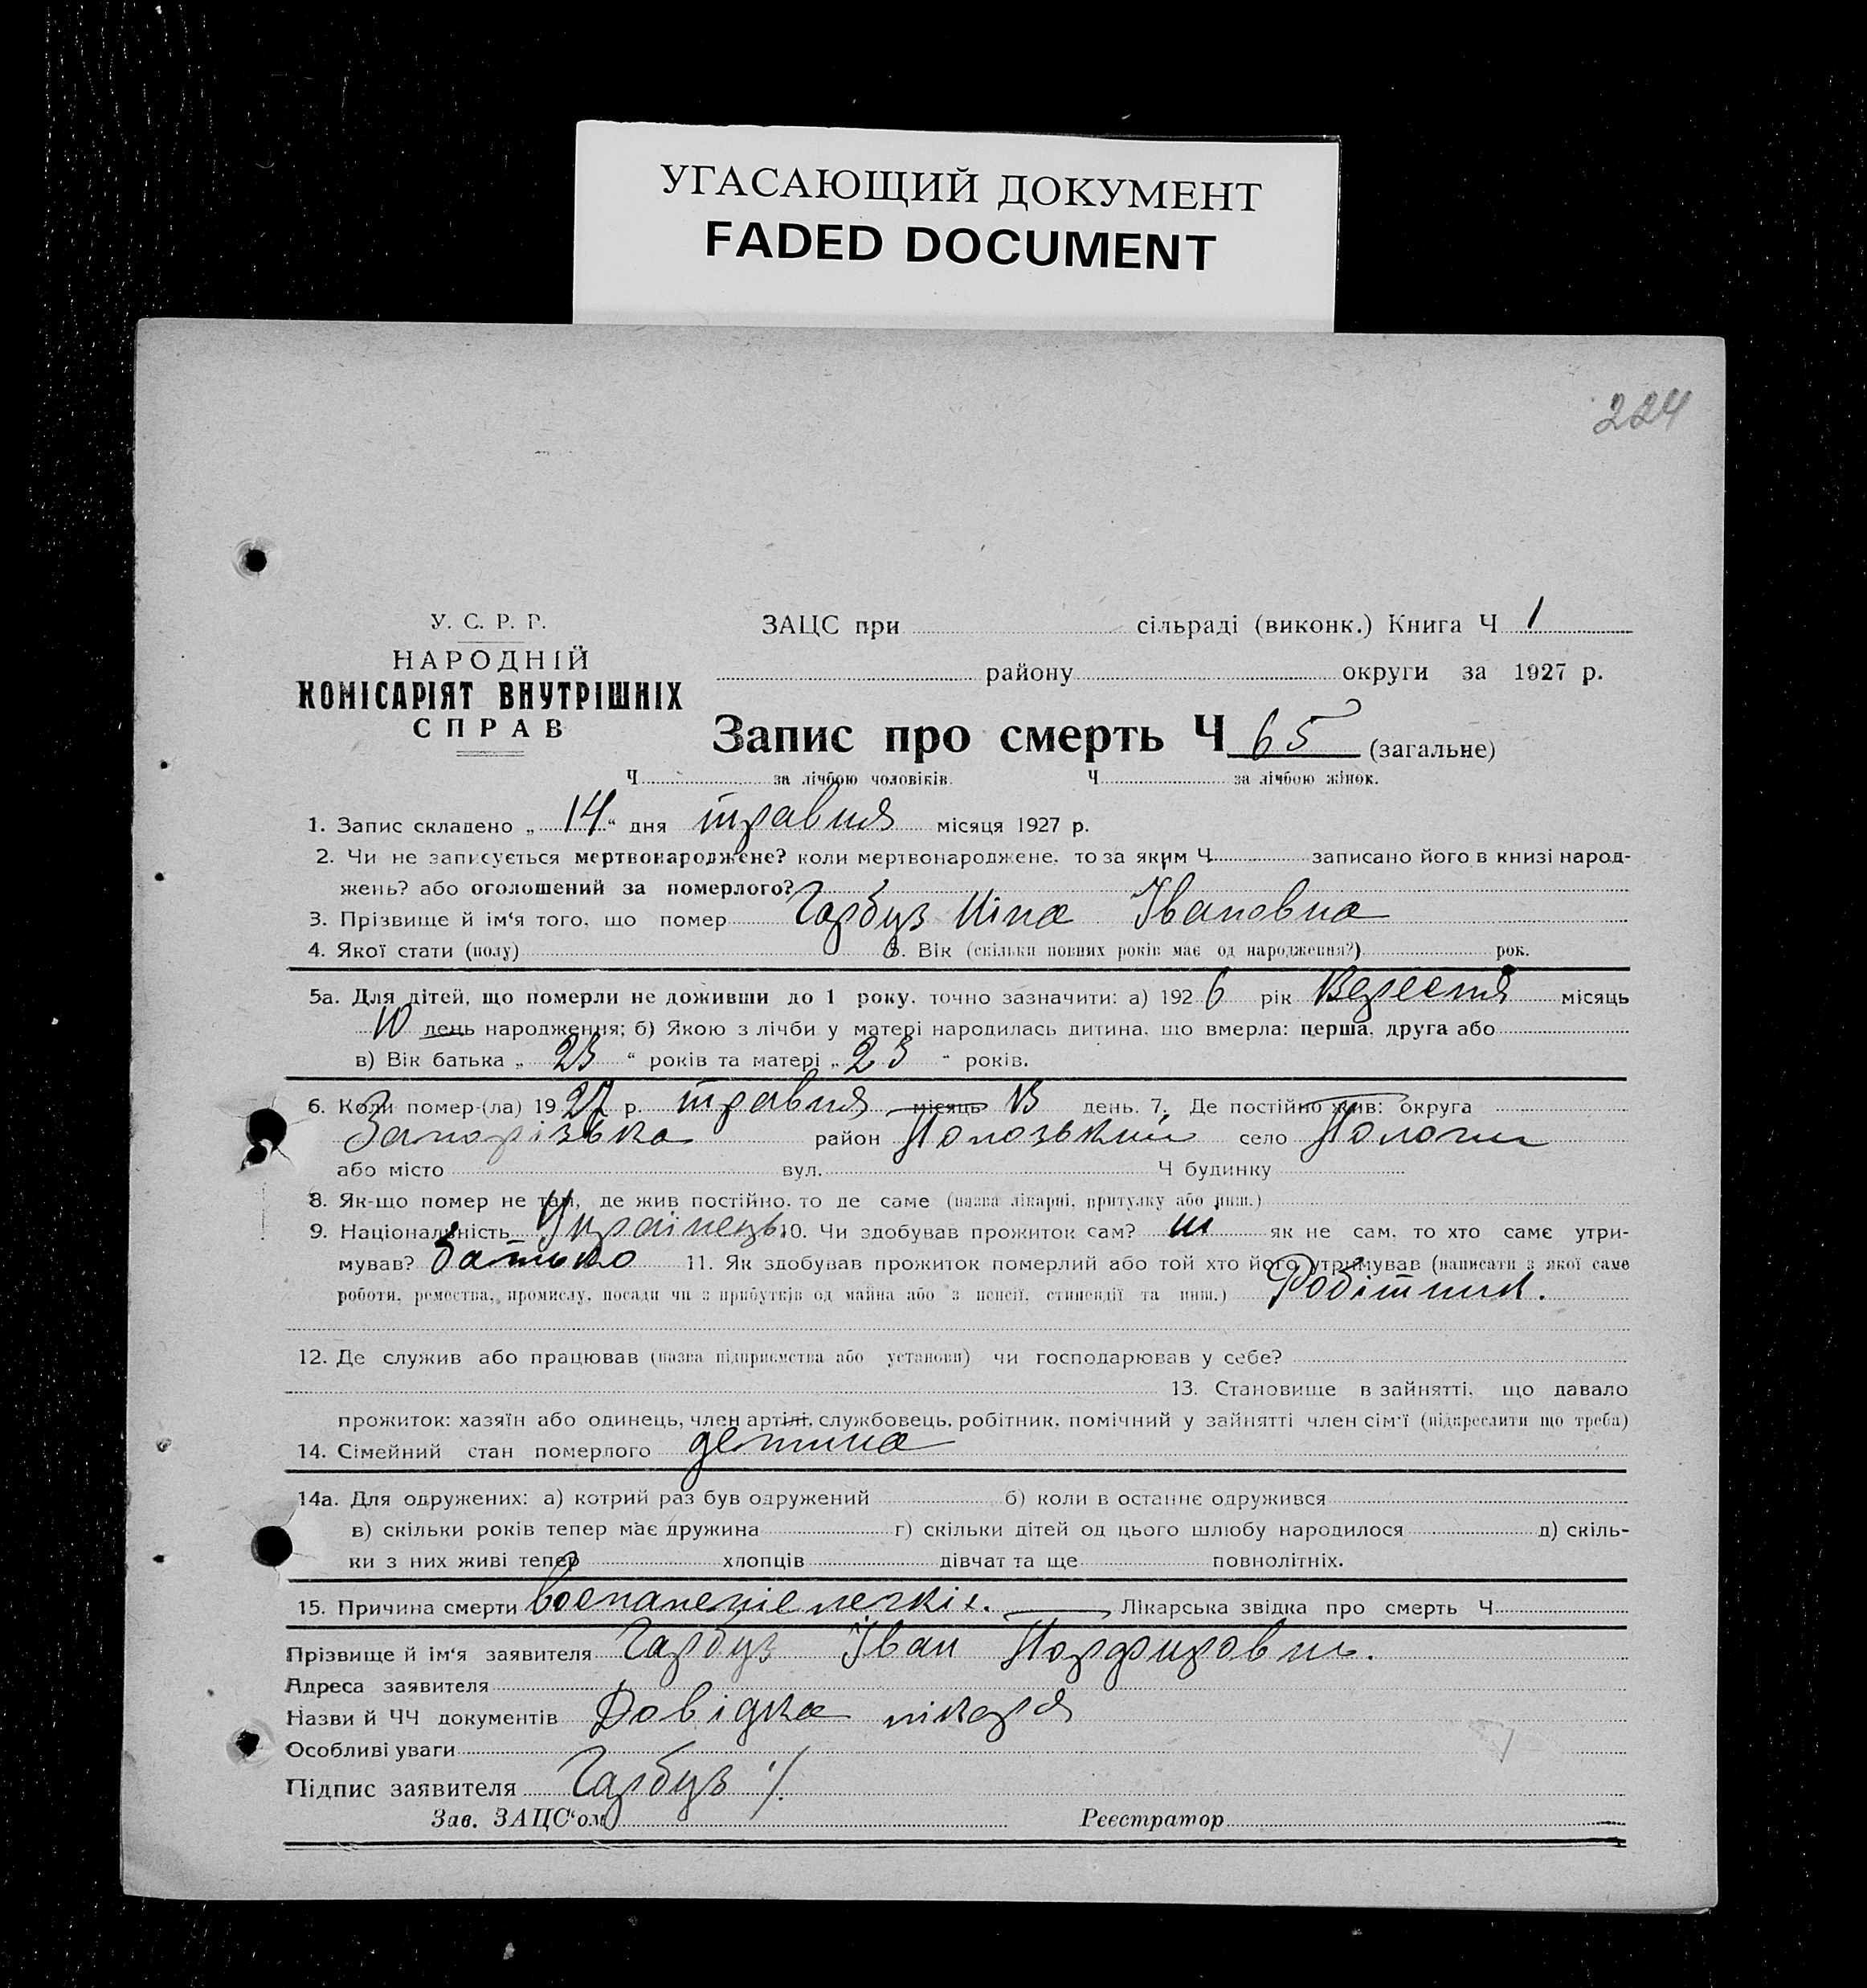 УГАСАЮЩИЙ ДОКУМЕНТ
FADED DOCUMENT
224
У. С. Р. Р.
НАРОДНІЙ
КОМІСАРІЯТ ВНУТРІШНІХ
СПРАВ
ЗАЦС при сільраді (виконк.) Книга Ч 1
району округи за 1927 р.
Запис про смерть Ч 65 (загальне)
Ч за лічбою чоловіків. Ч за лічбою жінок.
1. Запис складено „ 14 “ дня травня місяця 1927 р.
2. Чи не записується мертвонароджене? коли мертвонароджене, то за яким Ч записано його в книзі народ-
жень? або оголошений за померлого?
3. Прізвище й ім‘я того, що помер Гарбуз Ніна Івановна
4. Якої стати (полу) 5. Вік (скільки повних років має од народження?) рок.
5а. Для дітей, що померли не доживши до 1 року, точно зазначити: а) 192 6 рік Вересня місяць
10 день народження; б) Якою з лічби у матері народилась дитина, що вмерла: перша, друга або
в) Вік батька „ 23 “ років та матері „ 23 “ років.
6. Коли помер-(ла) 19 27 р. травня місяць 13 день. 7. Де постійно жив: округа
Запорізька район Полозький село Пологи
або місто вул. Ч будинку
8. Як-що помер не там, де жив постійно, то де саме (назва лікарні, притулку або инш.)
9. Національність Українець 10. Чи здобував прожиток сам? ні як не сам, то хто саме утри-
мував? батько 11. Як здобував прожиток померлий або той хто його утримував (написати з якої саме
роботи, ремества, промислу, посади чи з прибутків од майна або з пенсії, стипендії та инш.) Робітник.
12. Де служив або працював (назва підприємства або установи) чи господарював у себе?
13. Становище в зайнятті, що давало
прожиток: хазяїн або одинець, член артілі, службовець, робітник, помічний у зайнятті член сім‘ї (підкреслити що треба)
14. Сімейний стан померлого детина
14а. Для одружених: а) котрий раз був одружений б) коли в останнє одружився
в) скільки років тепер має дружина г) скільки дітей од цього шлюбу народилося д) скіль-
ки з них живі тепер хлопців дівчат та ще повнолітніх.
15. Причина смерти воспаленіе легкіх. Лікарська звідка про смерть Ч
Прізвище й ім‘я заявителя Гарбуз Іван Порфирович.
Адреса заявителя
Назви й ЧЧ документів Довідка лікаря
Особливі уваги
Підпис заявителя Гарбуз
Зав. ЗАЦС‘ом Реєстратор